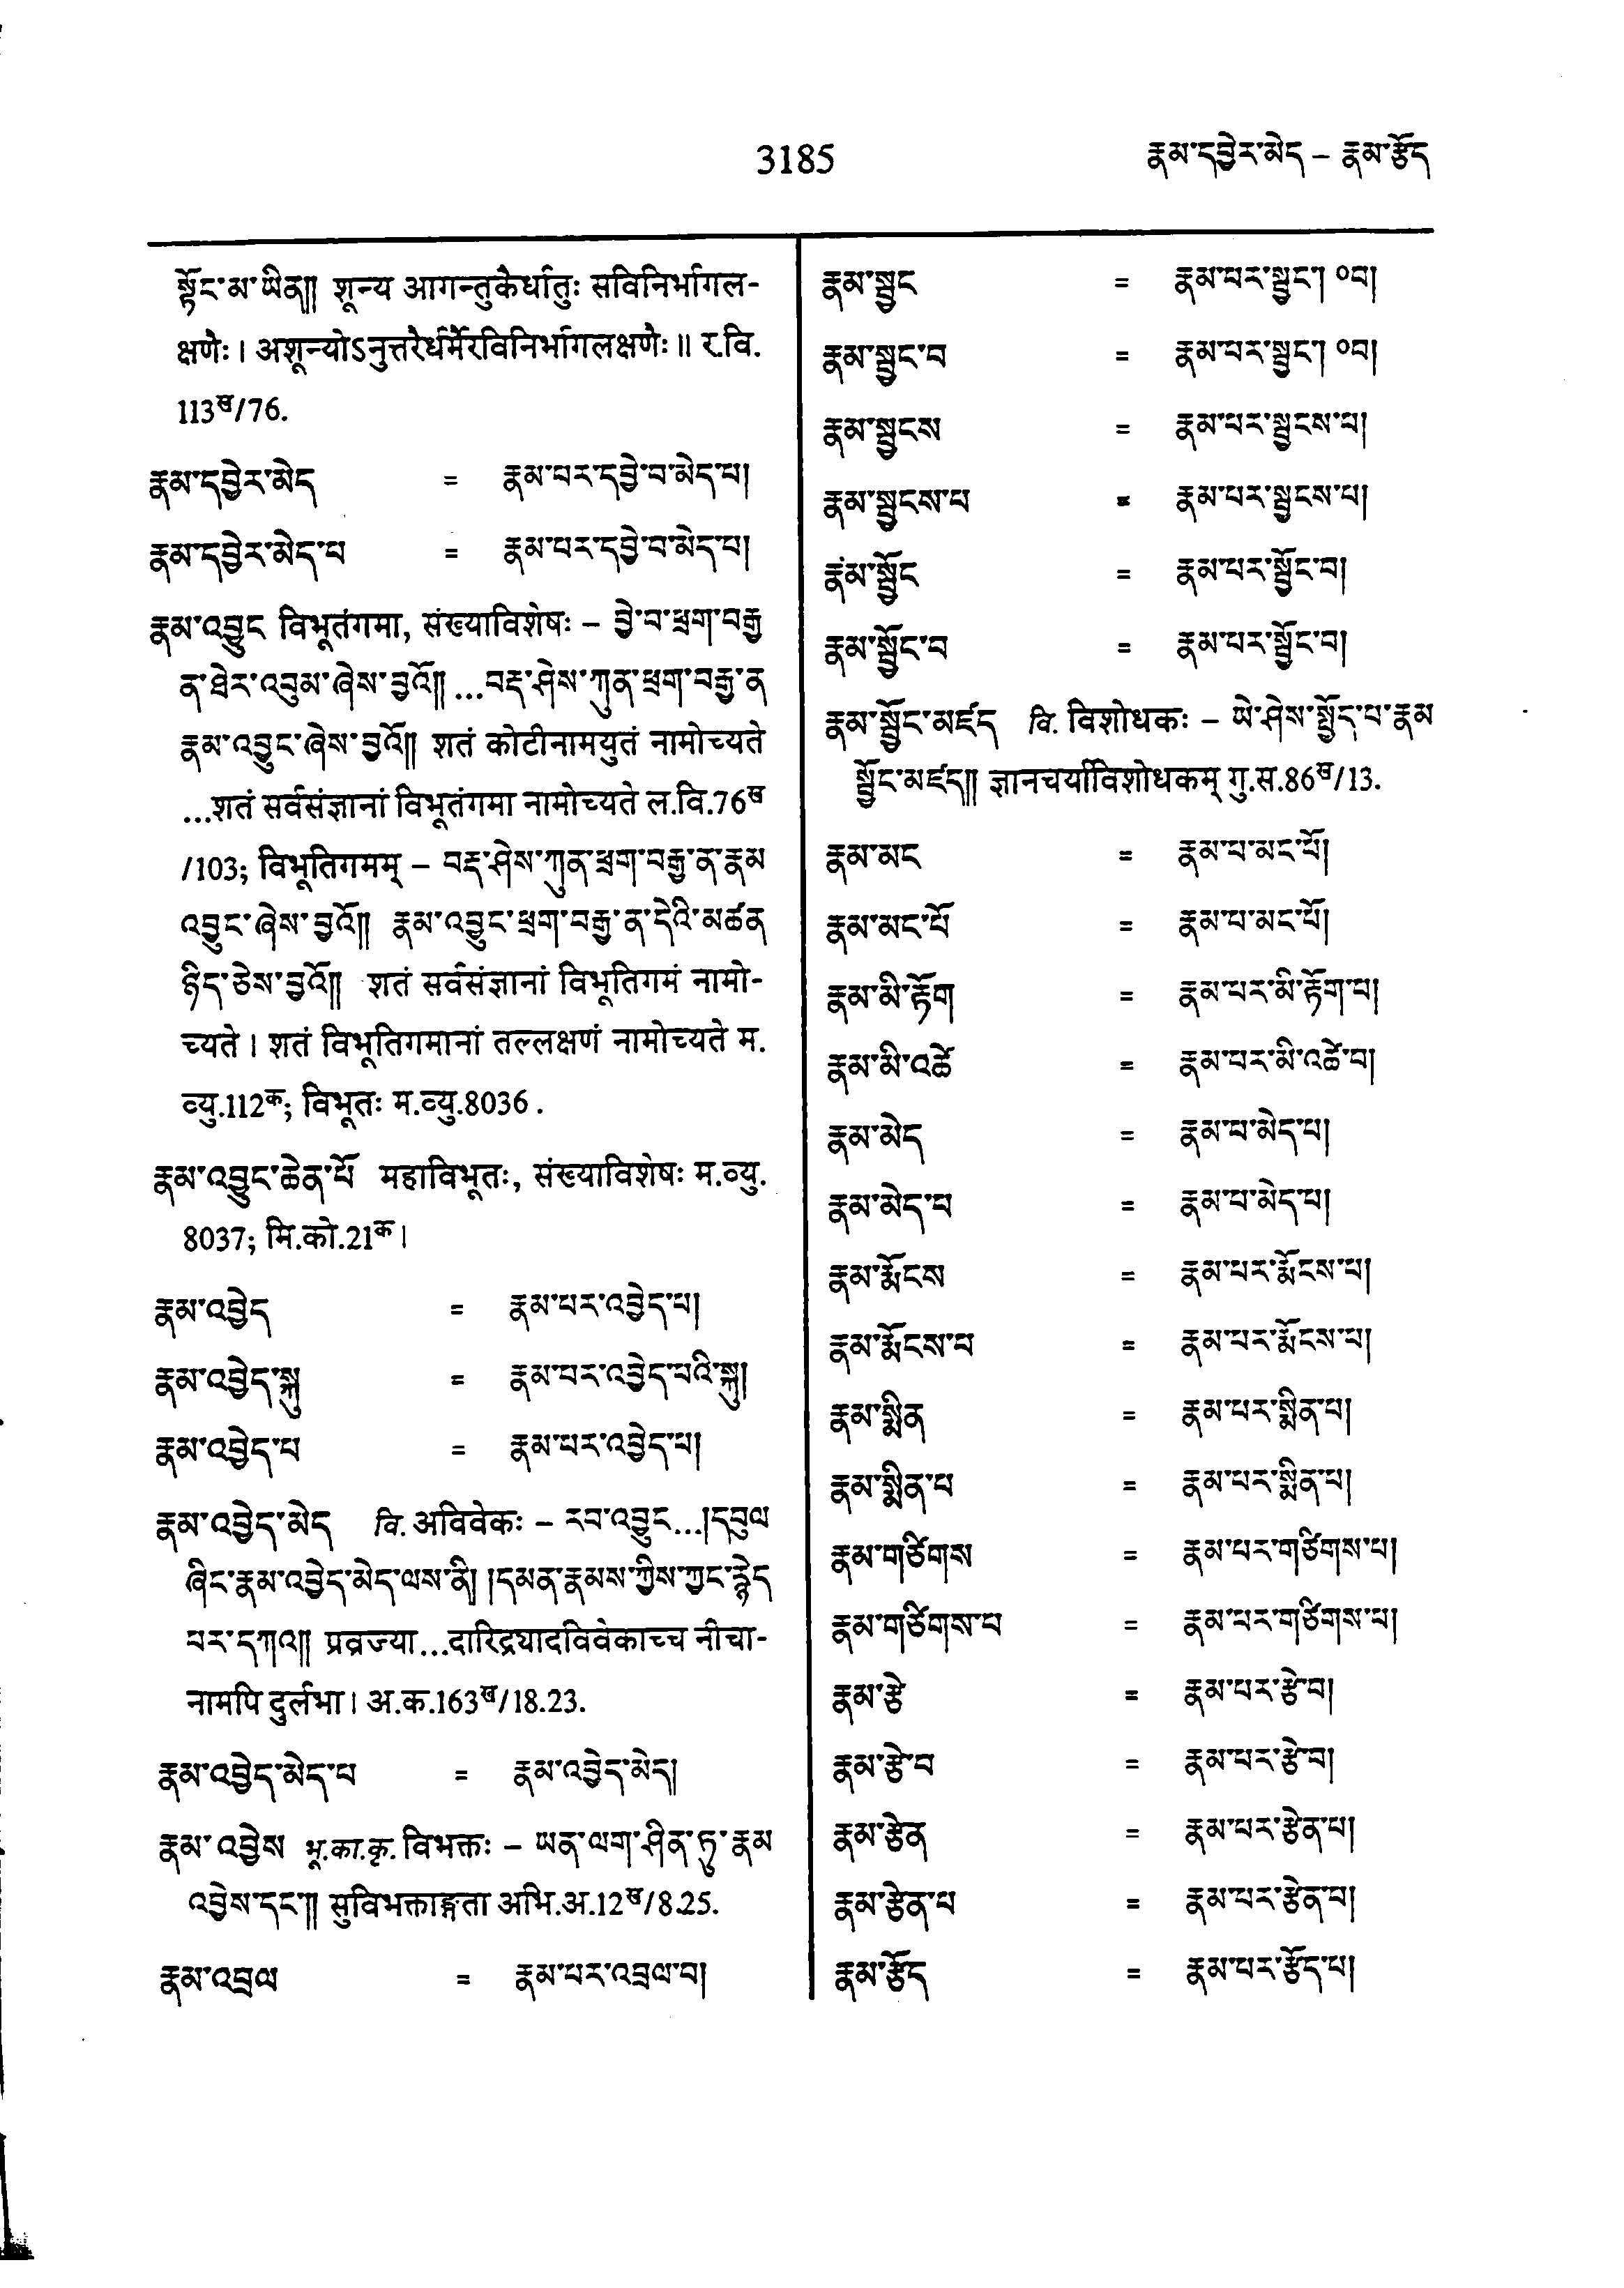 3185
རྣམ་དབྱེར་མེད – རྣམ་རྩོད
སྟོང་མ་ཡིན།། शून्य आगन्तुकैर्धातुः सविनिर्भागल-
क्षणैः। अशून्योऽनुत्तरैर्धर्मैरविनिर्भागलक्षणैः॥ र.वि.
113ख/76.
རྣམ་དབྱེར་མེད = རྣམ་པར་དབྱེ་བ་མེད་པ།
རྣམ་དབྱེར་མེད་པ = རྣམ་པར་དབྱེ་བ་མེད་པ།
རྣམ་འབྱུང विभूतंगमा, संख्याविशेषः – བྱེ་བ་ཕྲག་བརྒྱ
ན་ཐེར་འབུམ་ཞེས་བྱའོ།། ...བརྡ་ཤེས་ཀུན་ཕྲག་བརྒྱ་ན
རྣམ་འབྱུང་ཞེས་བྱའོ།། शतं कोटीनामयुतं नामोच्यते
...शतं सर्वसंज्ञानां विभूतंगमा नामोच्यते ल.वि.76ख
/103; विभूतिगमम् – བརྡ་ཤེས་ཀུན་ཕྲག་བརྒྱ་ན་རྣམ
འབྱུང་ཞེས་བྱའོ།། རྣམ་འབྱུང་ཕྲག་བརྒྱ་ན་དེའི་མཚན
ཉིད་ཅེས་བྱའོ།། शतं सर्वसंज्ञानां विभूतिगमं नामो-
च्यते। शतं विभूतिगमानां तल्लक्षणं नामोच्यते म.
व्यु.112क; विभूतः म.व्यु.8036.
རྣམ་འབྱུང་ཆེན་པོ महाविभूतः, संख्याविशेषः म.व्यु.
8037; मि.को.21क।
རྣམ་འབྱེད = རྣམ་པར་འབྱེད་པ།
རྣམ་འབྱེད་སྐུ = རྣམ་པར་འབྱེད་པའི་སྐུ།
རྣམ་འབྱེད་པ = རྣམ་པར་འབྱེད་པ།
རྣམ་འབྱེད་མེད वि. अविवेकः – རབ་འབྱུང...།དབུལ
ཞིང་རྣམ་འབྱེད་མེད་ལས་ནི། །དམན་རྣམས་ཀྱིས་ཀྱང་རྙེད
པར་དཀའ།། प्रव्रज्या...दारिद्र्यादविवेकाच्च नीचा-
नामपि दुर्लभा। अ.क.163ख/18.23.
རྣམ་འབྱེད་མེད་པ = རྣམ་འབྱེད་མེད།
རྣམ་འབྱེས भू.का.कृ. विभक्तः – ཡན་ལག་ཤིན་ཏུ་རྣམ
འབྱེས་དང་།། सुविभक्ताङ्गता अभि.अ.12ख/8.25.
རྣམ་འབྲལ = རྣམ་པར་འབྲལ་བ།
རྣམ་སྦྱང = རྣམ་པར་སྦྱང་། ०བ།
རྣམ་སྦྱང་བ = རྣམ་པར་སྦྱང་། ०བ།
རྣམ་སྦྱངས = རྣམ་པར་སྦྱངས་པ།
རྣམ་སྦྱངས་པ = རྣམ་པར་སྦྱངས་པ།
རྣམ་སྦྱོང = རྣམ་པར་སྦྱོང་བ།
རྣམ་སྦྱོང་བ = རྣམ་པར་སྦྱོང་བ།
རྣམ་སྦྱོང་མཛད वि. विशोधकः – ཡེ་ཤེས་སྤྱོད་པ་རྣམ
སྦྱོང་མཛད།། ज्ञानचर्याविशोधकम् गु.स.86ख/13.
རྣམ་མང = རྣམ་པ་མང་པོ།
རྣམ་མང་པོ = རྣམ་པ་མང་པོ།
རྣམ་མི་རྟོག = རྣམ་པར་མི་རྟོག་པ།
རྣམ་མི་འཚེ = རྣམ་པར་མི་འཚེ་བ།
རྣམ་མེད = རྣམ་པ་མེད་པ།
རྣམ་མེད་པ = རྣམ་པ་མེད་པ།
རྣམ་རྨོངས = རྣམ་པར་རྨོངས་པ།
རྣམ་རྨོངས་པ = རྣམ་པར་རྨོངས་པ།
རྣམ་སྨིན = རྣམ་པར་སྨིན་པ།
རྣམ་སྨིན་པ = རྣམ་པར་སྨིན་པ།
རྣམ་གཙིགས = རྣམ་པར་གཙིགས་པ།
རྣམ་གཙིགས་པ = རྣམ་པར་གཙིགས་པ།
རྣམ་རྩེ = རྣམ་པར་རྩེ་བ།
རྣམ་རྩེ་བ = རྣམ་པར་རྩེ་བ།
རྣམ་རྩེན = རྣམ་པར་རྩེན་པ།
རྣམ་རྩེན་པ = རྣམ་པར་རྩེན་པ།
རྣམ་རྩོད = རྣམ་པར་རྩོད་པ།